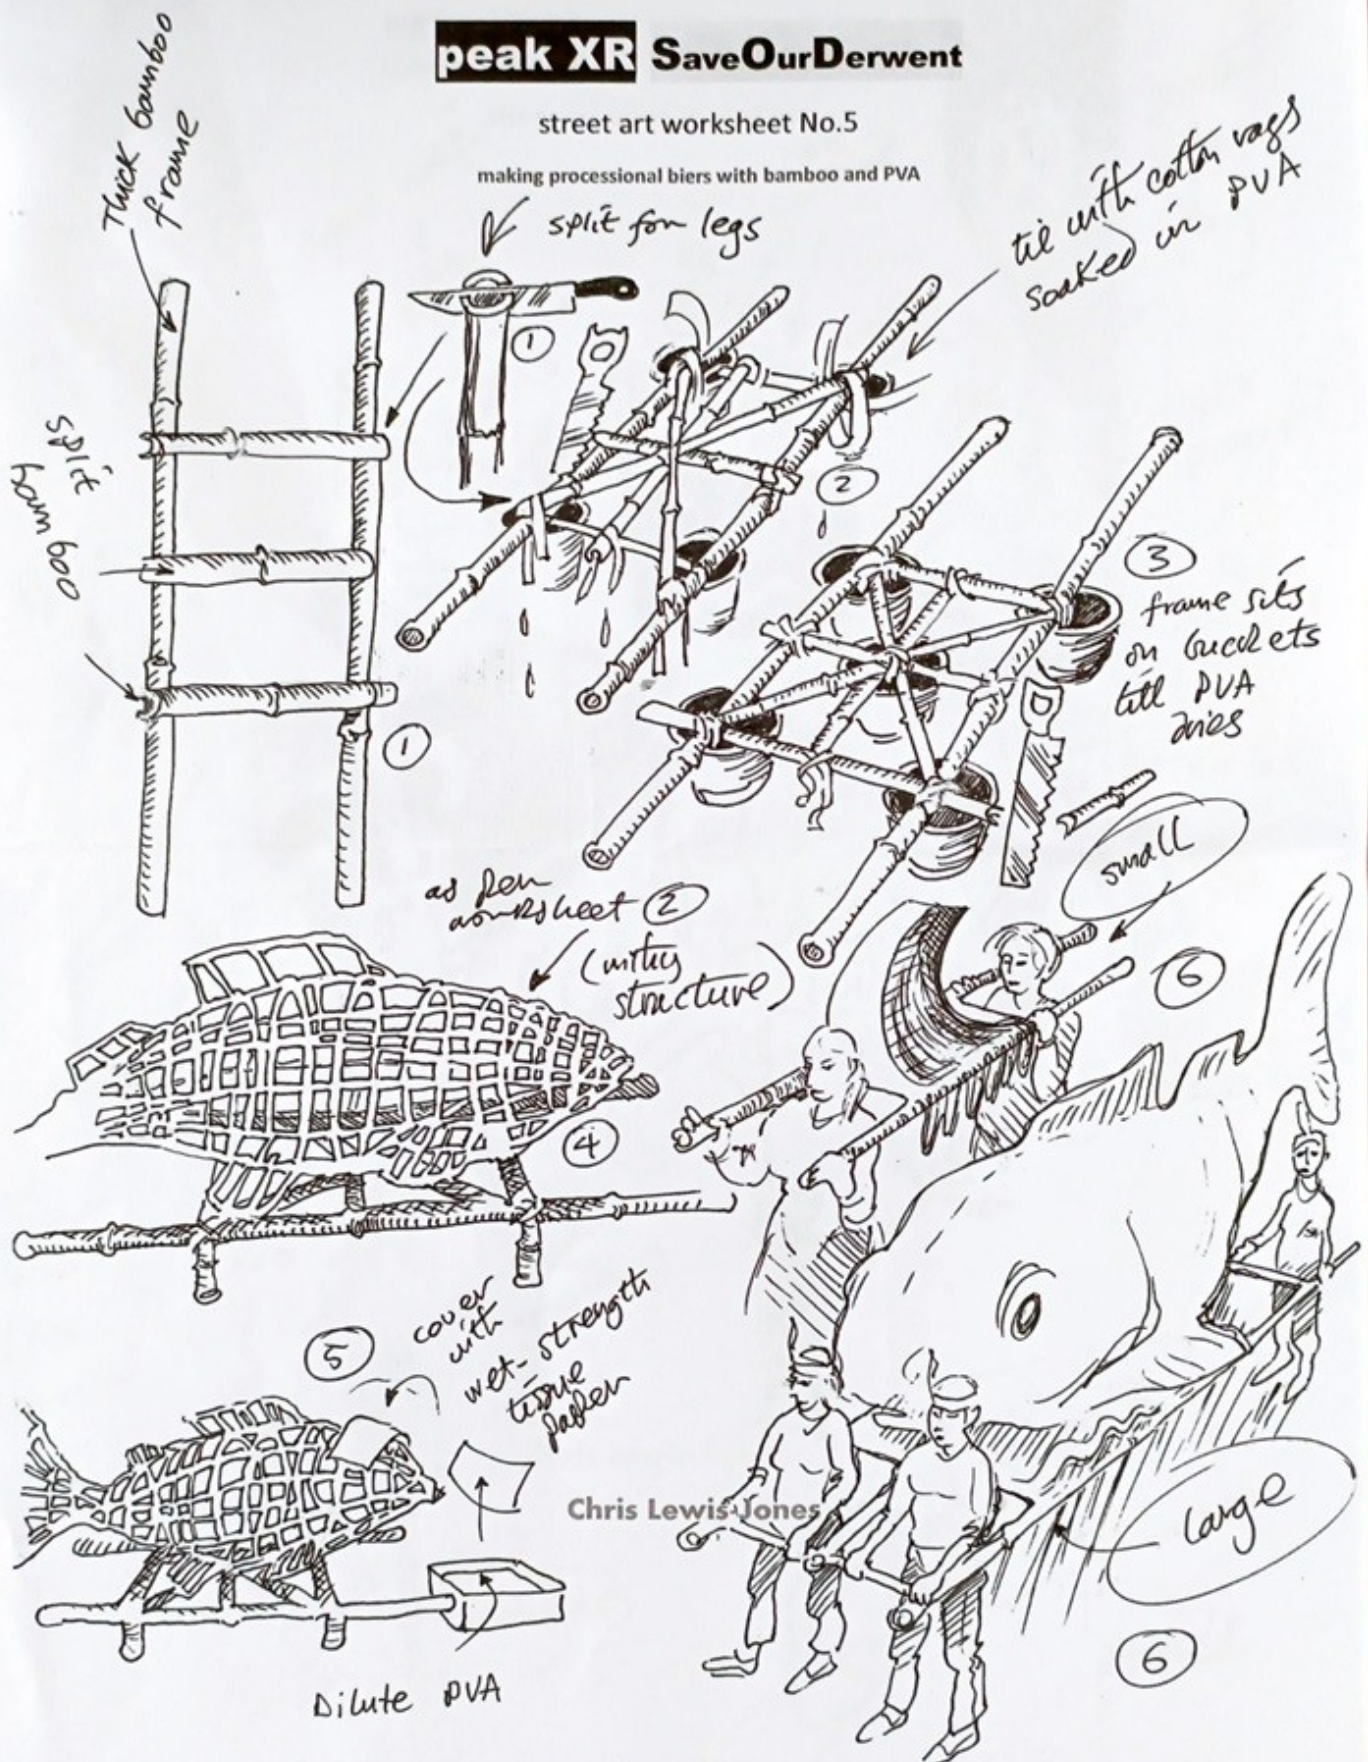 peak XR SaveOurDerwent
street art worksheet No.5
making processional biers with bamboo and PVA
Thick bamboo
frame
split for legs
tie with cotton rags
soaked in PVA
split
bamboo
1
1
2
3
frame sits
on buckets
till PVA
dries
small
as per
worksheet 2
(withy
structure)
4
6
5
cover
with
wet-strength
tissue
paper
Chris Lewis-Jones
large
Dilute PVA
6